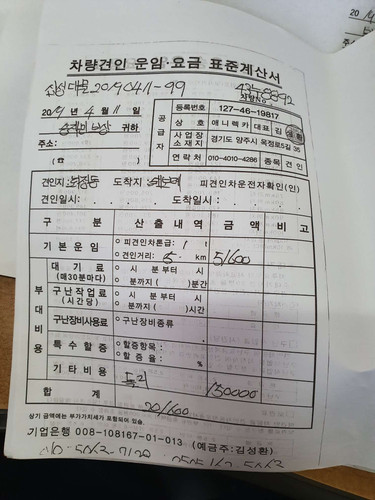 차량견인 운임·요금 표준계산서
20190411-99
차량No.
2019년 4월 11일
귀하
주소:
(☎ )
공급자
등록번호 127-46-19817
상호 애니렉카 대표 김성환
사업장소재지 경기도 양주시 옥정로5길 35
연락처 010-4010-4286 종목 견인
견인지: 도착지: 피견인차운전자확인(인)
견인일시: : 도착일시: :
구분 산출내역 금액 비고
기본운임 ○피견인차톤급: 1 t
○견인거리: 5 km 51600
부대비용
대기료 (매30분마다) ○ 시 분부터 시
분까지( )분간
구난작업료 (시간당) ○ 시 분부터 시
분까지( )시간
구난장비사용료 ○구난장비종류
특수할증 ○할증항목:
○할증율: %
기타비용 150000
합계 201600
상기 금액에는 부가가치세가 포함되지 않았음.
기업은행 008-108167-01-013 (예금주:김성환)